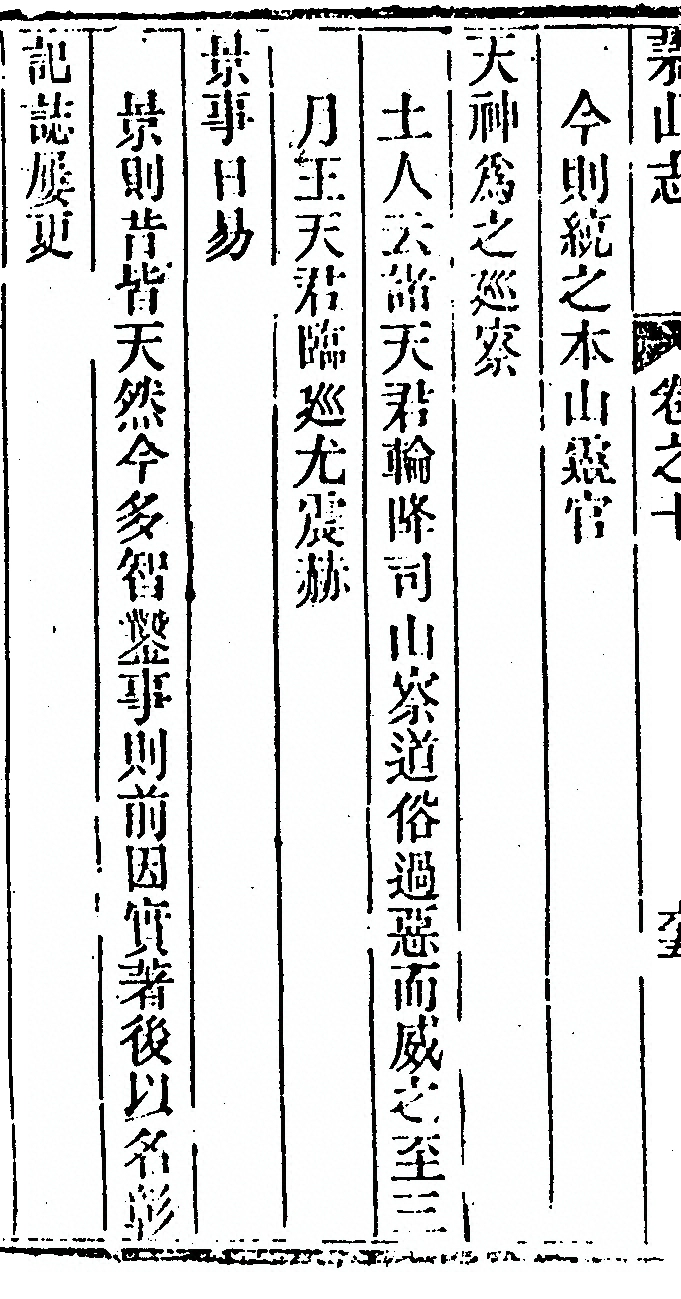 山志 卷之十
今則統之本山靈官
天神爲之廵察
土人云諸天君輪降司山察道俗過惡而威之至三
月王天君臨廵尤震赫
景事日易
景則昔皆天然今多智鑿事則前因實著後以名彰
記誌屢更